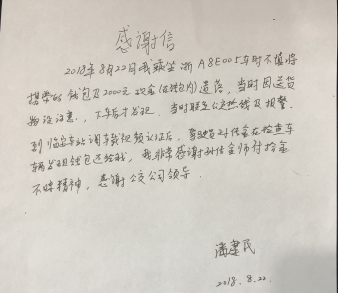 感谢信
2018年8月22日我乘坐浙A8E005车时不慎将
携带的钱包及2000元现金(在钱包内)遗落,当时因送货
物没注意,下车后才发现.当时联系公交热线及报警.
到临安车站调车载视频认证后,驾驶员孙信金在检查车
辆发现钱包还给我,我非常感谢孙信金师付拾金
不昧精神,感谢公交公司领导.
潘建民
2018.8.22.